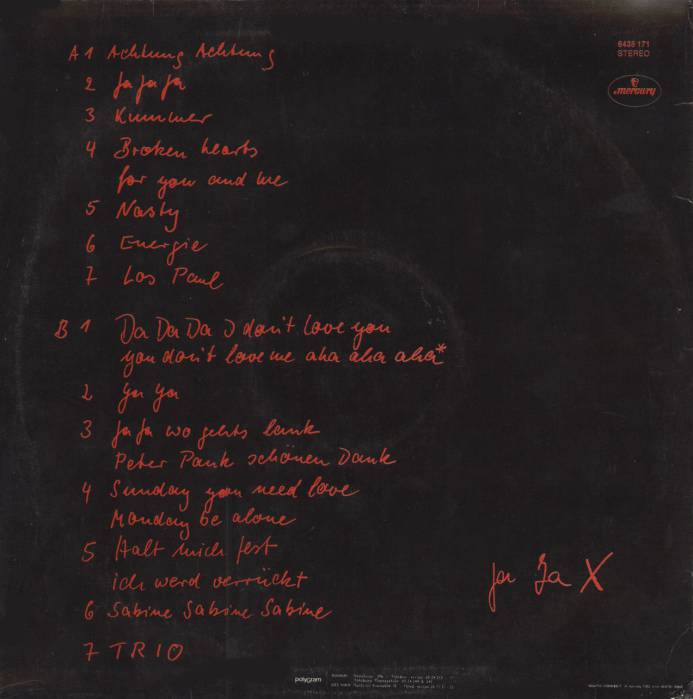 A 1 Achtung Achtung
2 Ja Ja Ja
3 Kummer
4 Broken hearts
for you and me
5 Nasty
6 Energie
7 Los Paul
B 1 Da Da Da I don't love you
you don't love me aha aha aha*
2 Ya Ya
3 Ja Ja wo gehts lank
Peter Pank schönen Dank
4 Sunday you need love
Monday be alone
5 Halt mich fest
ich werd verrückt
6 Sabine Sabine Sabine
7 TRIO
6435 171
STEREO
mercury
Ja Ja X
polygram